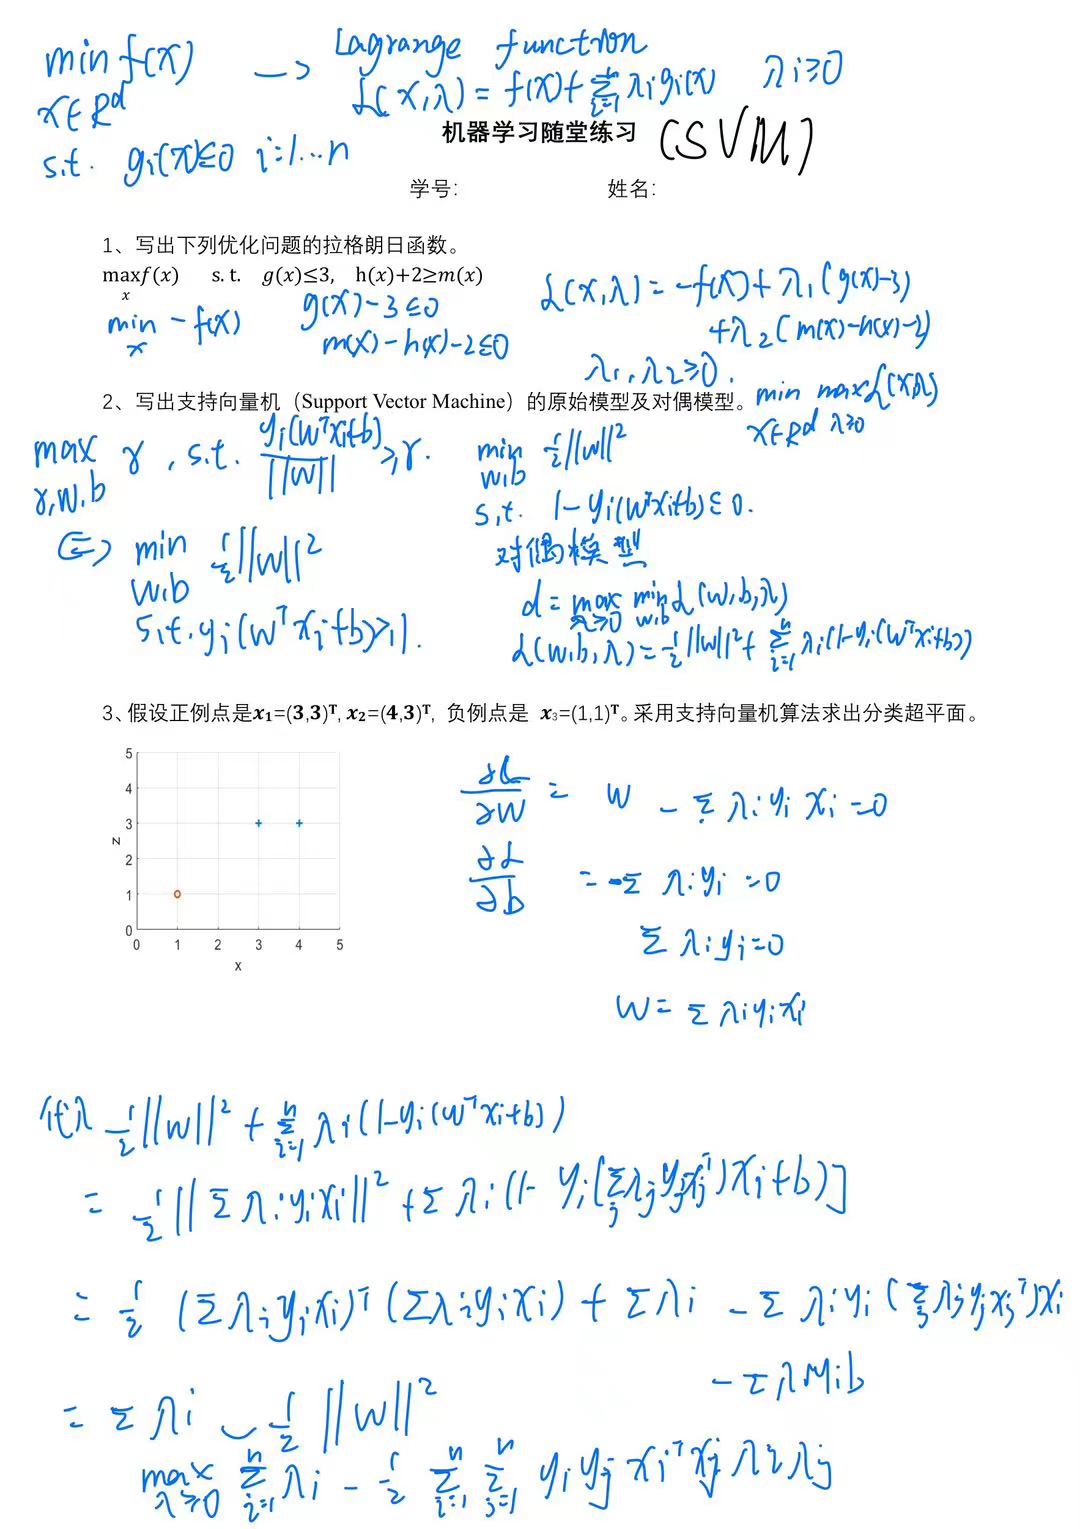 min f(x) → Lagrange function
x∈R^d L(x,λ) = f(x)+Σ_{i=1}^n λi gi(x) λi≥0
s.t. gi(x)≤0 i=1...n
机器学习随堂练习 (SVM)
学号: 姓名:
1、写出下列优化问题的拉格朗日函数。
max_x f(x) s.t. g(x)≤3, h(x)+2≥m(x)
min_x -f(x) g(x)-3≤0
m(x)-h(x)-2≤0
L(x,λ) = -f(x)+λ₁(g(x)-3)
+λ₂(m(x)-h(x)-2)
λ₁,λ₂≥0.
2、写出支持向量机（Support Vector Machine）的原始模型及对偶模型。
min max L(x,λ)
x∈R^d λ≥0
max γ, s.t. yi(w^T xi+b)/||w|| ≥γ.
γ,w,b
⇔ min ½||w||²
w,b
s.t. yi(w^T xi+b)≥1.
min ½||w||²
w,b
s.t. 1-yi(w^T xi+b)≤0.
对偶模型
d = max_{λ≥0} min_{w,b} L(w,b,λ)
L(w,b,λ)=½||w||²+Σ_{i=1}^n λi(1-yi(w^T xi+b))
3、假设正例点是x₁=(3,3)ᵀ, x₂=(4,3)ᵀ, 负例点是 x₃=(1,1)ᵀ。采用支持向量机算法求出分类超平面。
5
4
3
2
1
0
z
0 1 2 3 4 5
x
∂L/∂w = w - Σ λi yi xi =0
∂L/∂b = -Σ λi yi =0
Σ λi yi=0
w = Σ λi yi xi
代入 ½||w||² + Σ_{i=1}^n λi(1-yi(w^T xi+b))
= ½||Σ λi yi xi||² +Σ λi (1- yi(Σ_j λj yj xj^T)xi+b)]
= ½ (Σ λi yi xi)^T (Σ λi yi xi) + Σλi - Σ λi yi (Σ_j λj yj xj^T)xi
- Σ λ yi b
= Σ λi - ½ ||w||²
max_{λ≥0} Σ_{i=1}^n λi - ½ Σ_{i=1}^n Σ_{j=1}^n yi yj xi^T xj λi λj